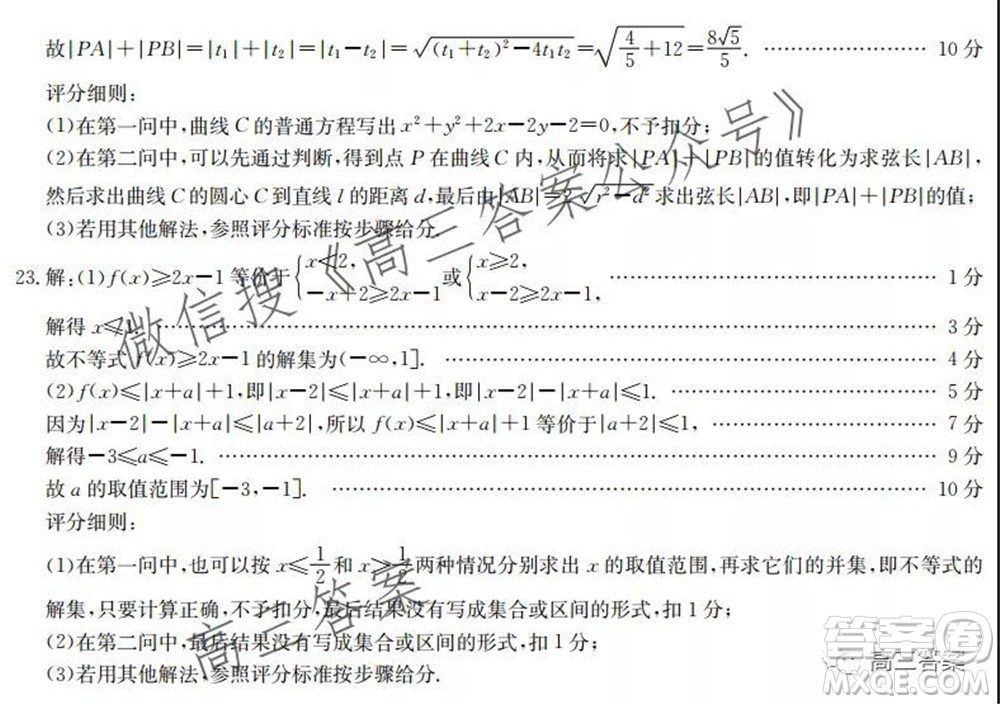 故|PA|+|PB|=|t₁|+|t₂|=|t₁-t₂|=√((t₁+t₂)²-4t₁t₂)=√(4/5+12)=8√5/5. ………………… 10 分
评分细则:
(1)在第一问中,曲线 C 的普通方程写出 x²+y²+2x-2y-2=0,不予扣分;
(2)在第二问中,可以先通过判断,得到点 P 在曲线 C 内,从而将求|PA|+|PB|的值转化为求弦长|AB|,
然后求出曲线 C 的圆心 C 到直线 l 的距离 d,最后由|AB|=2√(r²-d²)求出弦长|AB|,即|PA|+|PB|的值;
(3)若用其他解法,参照评分标准按步骤给分.
23.解:(1)f(x)≥2x-1 等价于{x<2, -x+2≥2x-1 或{x≥2, x-2≥2x-1, ………………… 1 分
解得 x≤1. ………………… 3 分
故不等式 f(x)≥2x-1 的解集为(-∞,1]. ………………… 4 分
(2)f(x)≤|x+a|+1,即|x-2|≤|x+a|+1,即|x-2|-|x+a|≤1. ………………… 5 分
因为|x-2|-|x+a|≤|a+2|,所以 f(x)≤|x+a|+1 等价于|a+2|≤1, ………………… 7 分
解得-3≤a≤-1. ………………… 9 分
故 a 的取值范围为[-3,-1]. ………………… 10 分
评分细则:
(1)在第一问中,也可以按 x≤1/2 和 x>1/2 两种情况分别求出 x 的取值范围,再求它们的并集,即可得到不等式
解集,只要计算正确,不予扣分,最后结果没有写成集合或区间的形式,扣 1 分;
(2)在第二问中,最后结果没有写成集合或区间的形式,扣 1 分;
(3)若用其他解法,参照评分标准按步骤给分.
微信搜《高三答案公众号》
高三答案
答案卷
高三答案
MXQE.COM